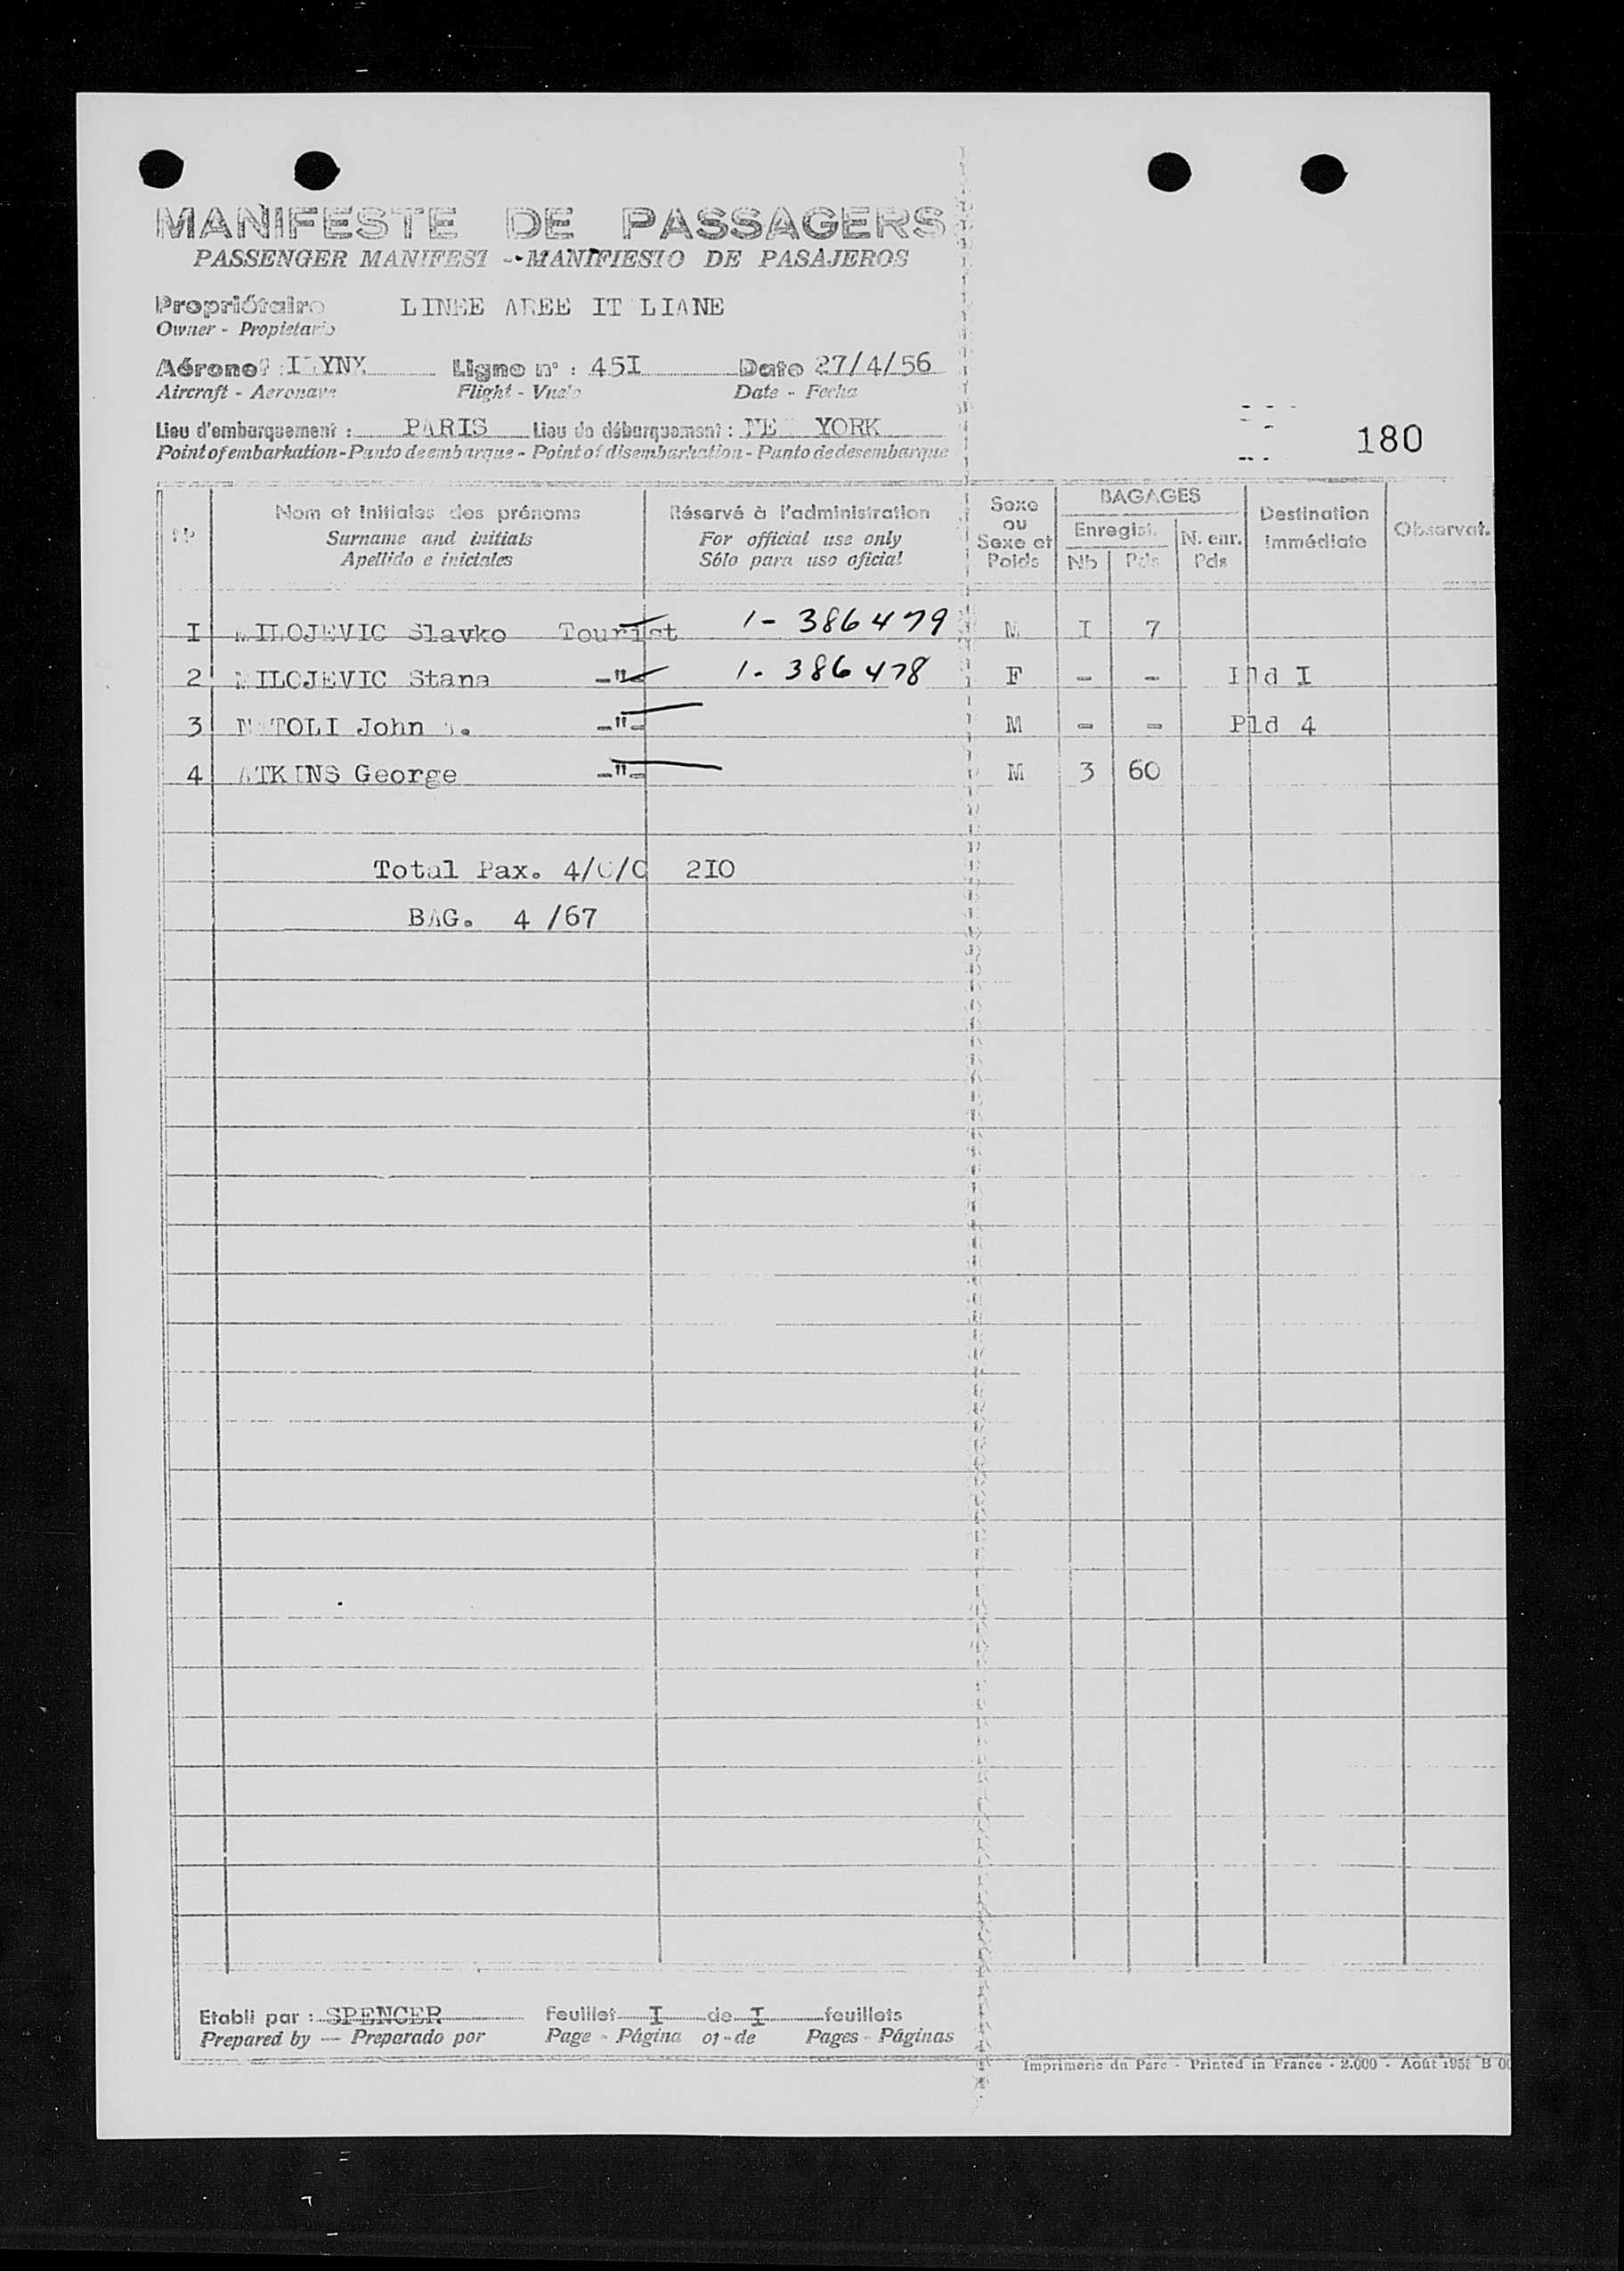 MANIFESTE DE PASSAGERS
PASSENGER MANIFEST - MANIFIESTO DE PASAJEROS
Propriétaire LINEE AREE IT LIANE
Owner - Propietario
Aéronef : I YNX Ligne n° : 45I Date 27/4/56
Aircraft - Aeronave Flight - Vuelo Date - Fecha
Lieu d'embarquement : PARIS Lieu de débarquement : NE YORK
Point of embarkation - Punto de embarque - Point of disembarkation - Punto de desembarque
180
Nº Nom et initiales des prénoms Réservé à l'administration Sexe ou Sexe et Poids BAGAGES Destination immédiate Observat.
Surname and initials For official use only Enregist. N. enr.
Apellido e iniciales Sólo para uso oficial Nb Pds Pds
I MILOJEVIC Slavko Tourist 1- 386479 M I 7
2 MILOJEVIC Stana -"- 1- 386478 F - - I ld I
3 N TOLI John . -"- M - - Pld 4
4 ATKINS George -"- M 3 60
Total Pax. 4/0/0 2IO
BAG. 4 /67
Etabli par : SPENCER Feuillet I de I feuillets
Prepared by — Preparado por Page - Página of - de Pages - Páginas
Imprimerie du Parc - Printed in France - 2.000 - Août